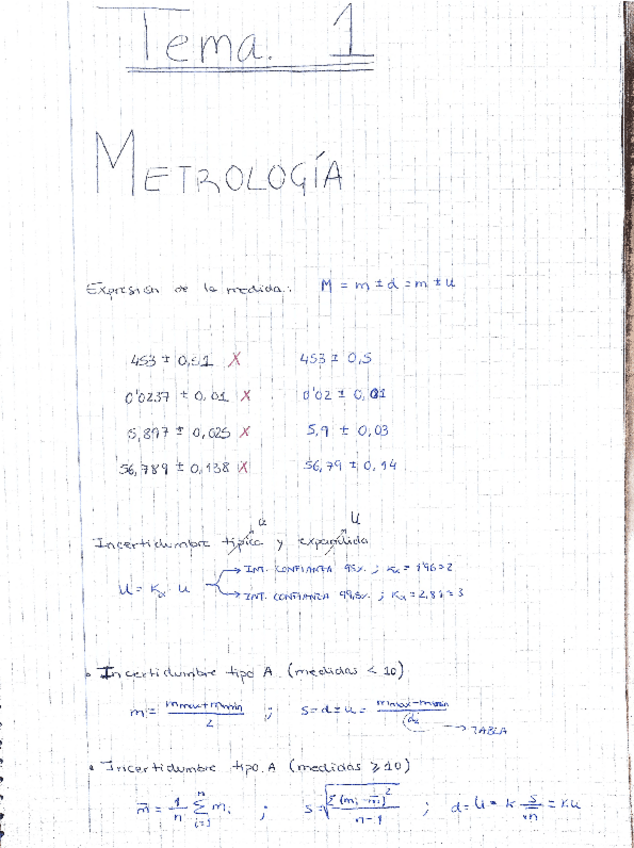 Tema. 1
METROLOGÍA
Expresión de la medida: M = m ± d = m ± u
453 ± 0,51 X 453 ± 0,5
0'0237 ± 0,01 X 0'02 ± 0,01
5,897 ± 0,025 X 5,9 ± 0,03
56,789 ± 0,138 X 56,79 ± 0,14
u U
Incertidumbre típica y expandida
→ INT. CONFIANZA 95%. ; Kα = 1'96 ≈ 2
U = Kα · u
→ INT. CONFIANZA 99,5%. ; Kα = 2,81 ≈ 3
• Incertidumbre tipo A (medidas < 10)
m = (mmax + mmin)/2 ; s = d = u = (mmax - mmin)/d → TABLA
• Incertidumbre tipo A (medidas ≥ 10)
m̅ = 1/n Σ(i=1, n) mi ; s = √(Σ(mi - m̅)²/(n-1)) ; d = U = K s/√n = K.u